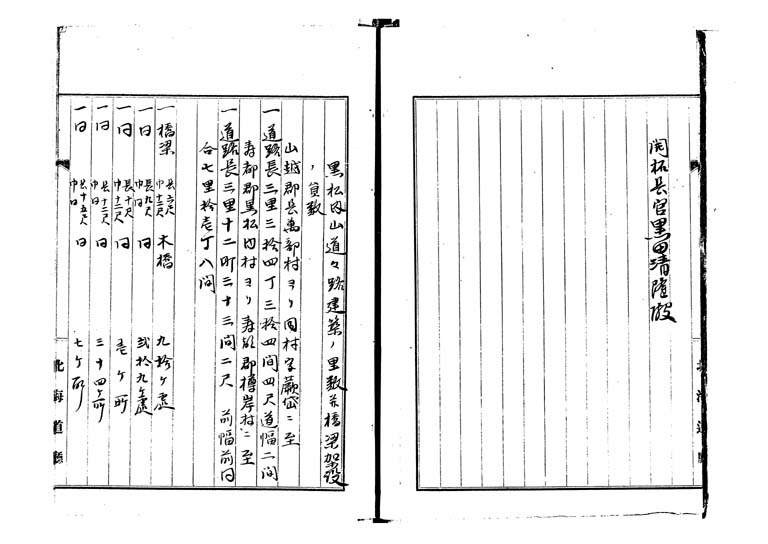 開拓長官黒田清隆殿
黒松内山道々路建築ノ里数并橋梁架設
ノ員数
山越郡長萬部村ヨリ同村字蕨岱ニ至
一道路長三里三拾四丁三拾四間四尺道幅二間
寿都郡黒松内村ヨリ寿都郡樽岸村ニ至
一道路長三里十二町三十三間二尺 前幅前同
合七里拾壱丁八間
一橋梁 長六尺 巾十二尺 木橋 九拾ケ處
一同 長九尺 巾同 同 弐拾九ケ處
一同 長十尺 巾十二尺 同 壱ケ所
一同 長十二尺 巾同 同 三十四ケ所
一同 長十五尺 巾同 同 七ケ所
北海道廳